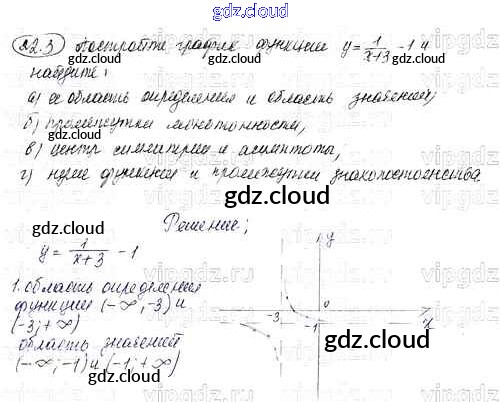 gdz.cloud
22.3 Постройте график функции y = 1/(x+3) - 1 и
найдите:
а) область определения и область значений;
б) промежутки монотонности,
в) центр симметрии и асимптоты,
г) нули функции и промежутки знакопостоянства.
gdz.cloud
gdz.cloud
gdz.cloud
gdz.cloud
Решение;
y = 1/(x+3) - 1
1. область определения
функции (-∞; -3) и
(-3; +∞)
область значений
(-∞; -1) и (-1; +∞)
y
-3
0
-1
x
gdz.cloud
gdz.cloud
gdz.cloud